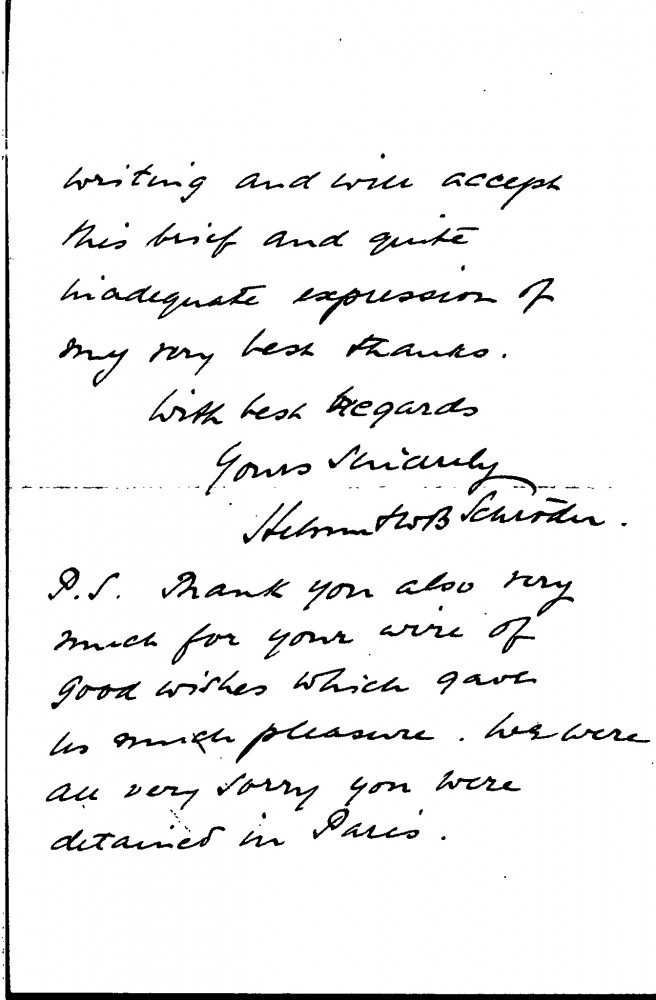 writing and will accept
this brief and quite
inadequate expression of
my very best thanks.
With best Regards
Yours Sincerely
Helmut W B Schröder.
P.S. Thank you also very
much for your wire of
good wishes which gave
us much pleasure. We were
all very sorry you were
detained in Paris.